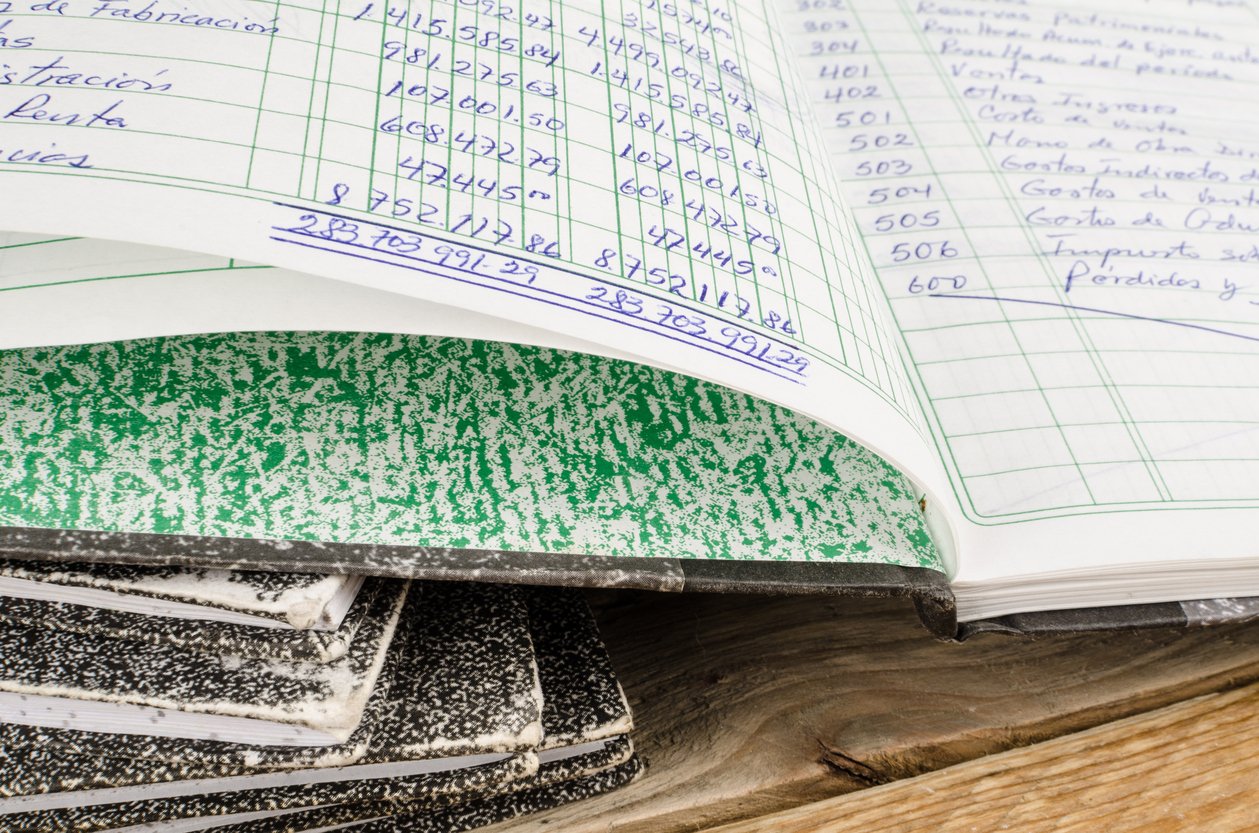 157400
22543.86
092.47 4.499.092.47
1.415.585.84 1.415.585.84
de Fabricación 981.275.63 981.275.63
107.001.50 107.001.50
608.472.79 608.472.79
Renta 47.445.00 47.445.00
8.752.117.86 8.752.117.86
283.703.991.29 283.703.991.29
302 Reservas Patrimoniales
303 Resultado Acum. de Ejerc.
304 Resultado del período
401 Ventas
402 Otros Ingresos
501 Costo de Ventas
502 Mano de Obra
503 Gastos Indirectos de
504 Gastos de Vent
505 Gastos de
506 Impuesto
600 Pérdidas y